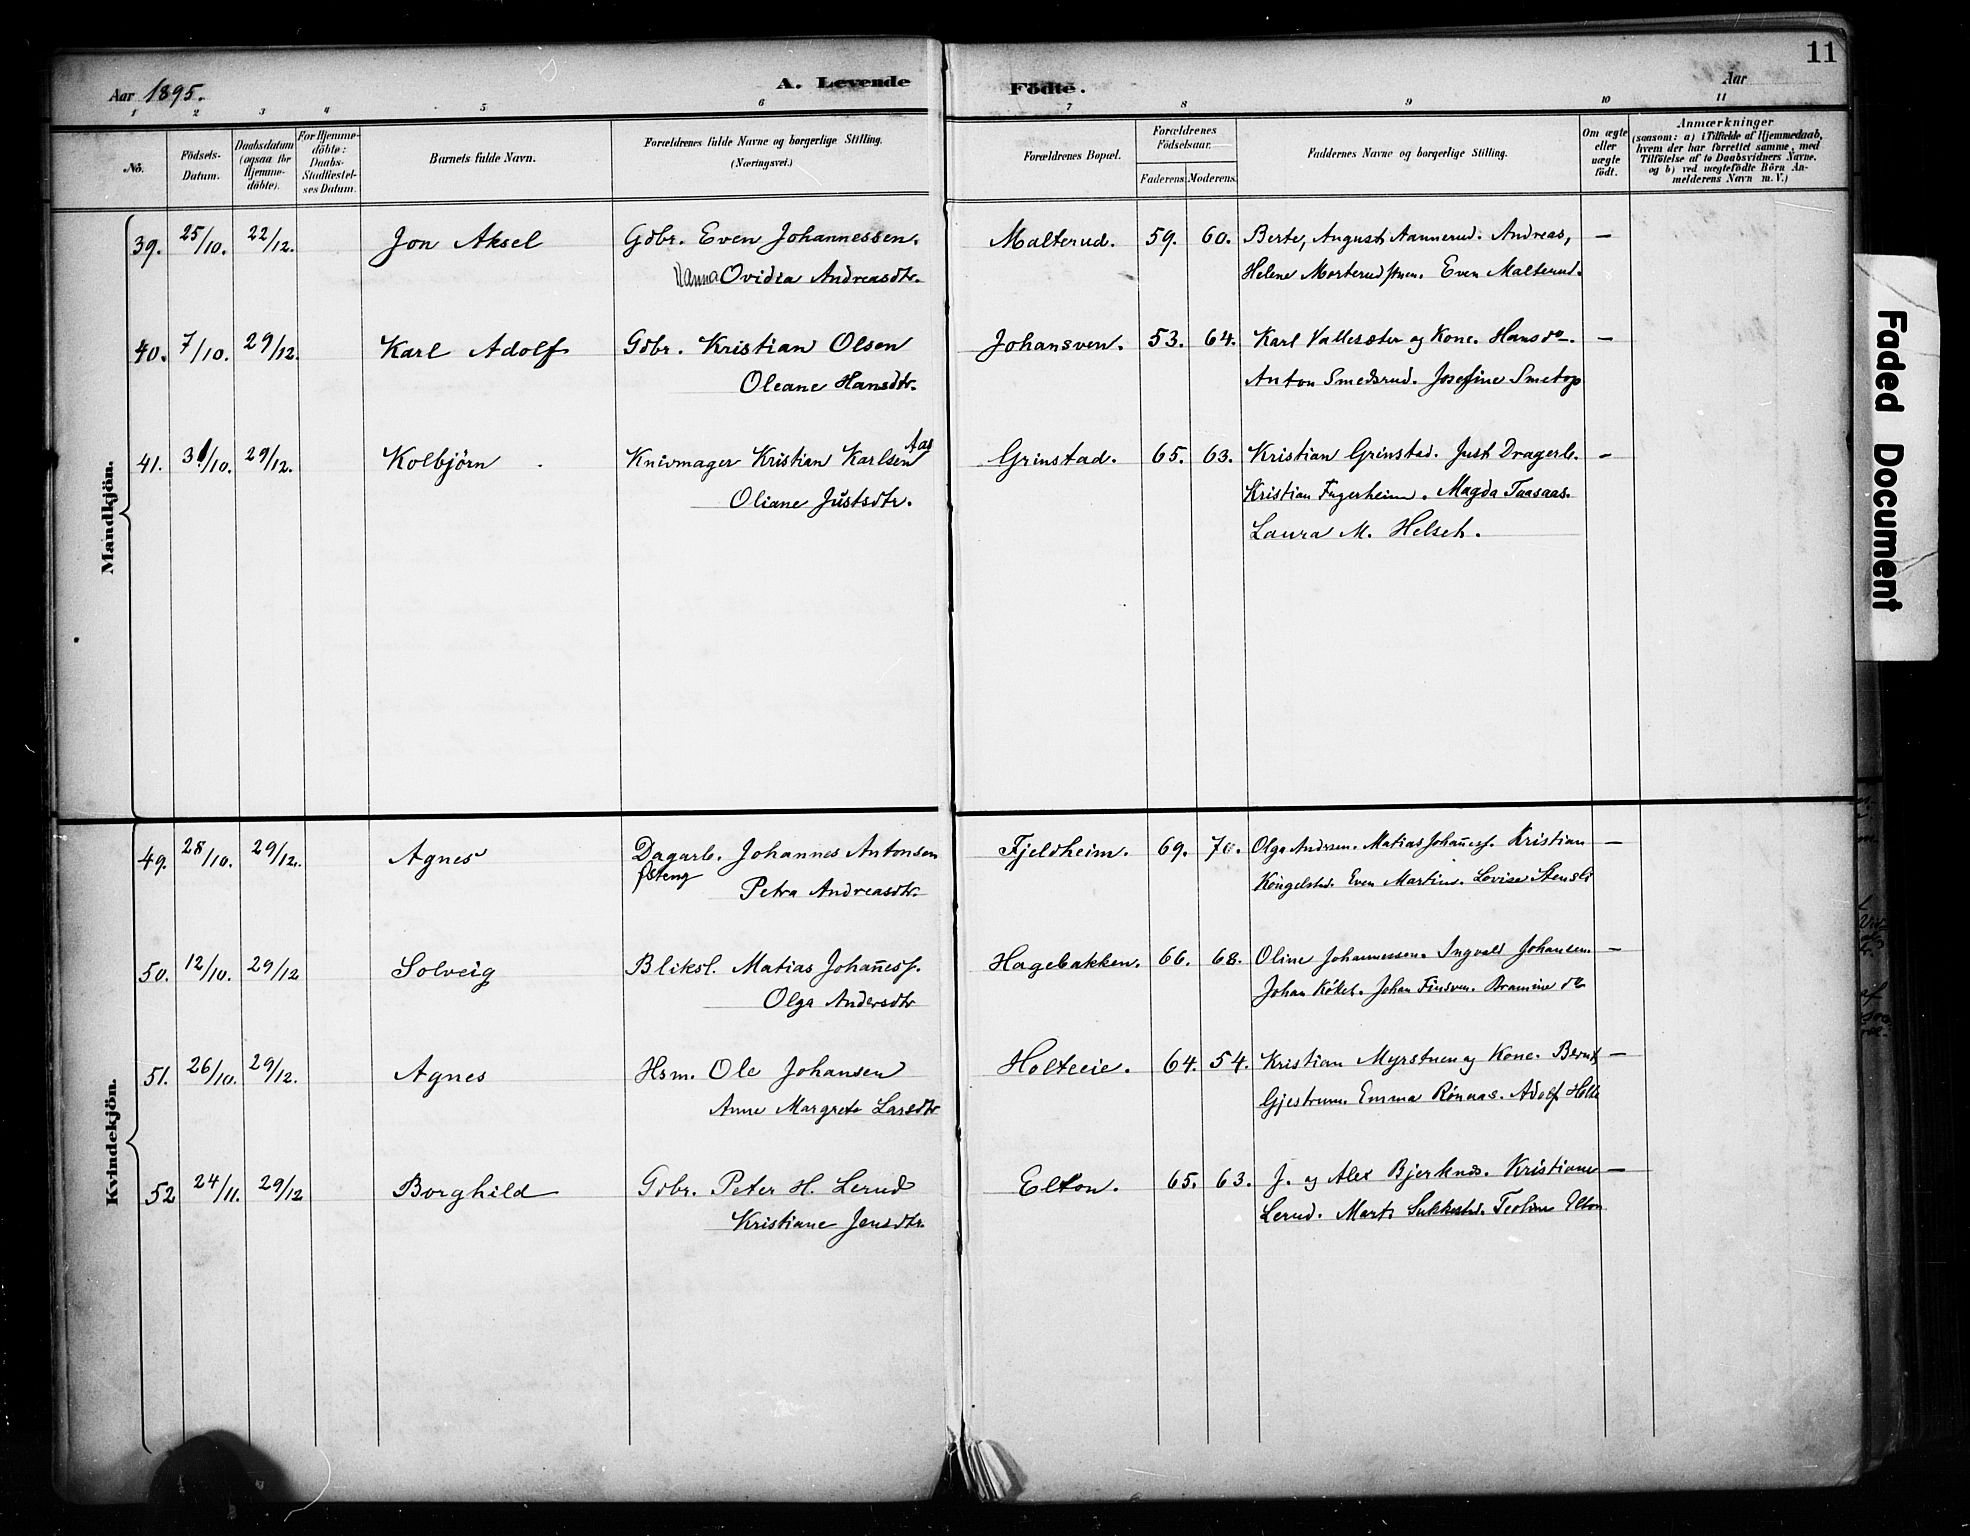 11
Aar 1895.
A. Levende Födte.
Aar
1 2 3 4 5 6 7 8 9 10 11
No.
Födsels-Datum.
Daabsdatum (ogsaa for Hjemme-döbte).
For Hjemme-döbte: Daabs-Stadfæstel-ses Datum.
Barnets fulde Navn.
Forældrenes fulde Navne og borgerlige Stilling. (Næringsvei.)
Forældrenes Bopæl.
Forældrenes Födselsaar.
Faderens. Moderens.
Faddernes Navne og borgerlige Stilling.
Om ægte eller uægte födt.
Anmærkninger
(saasom: a) i Tilfælde af Hjemmedaab, hvem der har forrettet samme, med Tilföielse af to Daabsvidners Navne. og b) ved uægtefödte Börn An-melderens Navn m. V.)
Mandkjön.
39. 25/10. 22/12. Jon Aksel Gdbr. Even Johannessen. Malterud. 59. 60. Berte, August Aannerud. Andreas, —
Hanna Ovidia Andreasdtr. Helene Morterudstuen. Even Malterud.
40. 7/10. 29/12. Karl Adolf Gdbr. Kristian Olsen Johansven. 53. 64. Karl Vallesæter og Kone. Hans do. —
Oleane Hansdtr. Anton Smedsrud. Josefine Smetop
41. 31/10. 29/12. Kolbjörn Knivmager Kristian Karlsen Aas Grinstad. 65. 63. Kristian Grinstad. Just Dragerb. —
Oliane Justsdtr. Kristian Fagerheim. Magda Taasaas.
Laura M. Helset.
Kvindekjön.
49. 28/10. 29/12. Agnes Dagarb. Johannes Antonsen Fjeldheim. 69. 70. Olga Andrsen. Matias Johan̄esf. Kristian —
Petra Andreasdtr. Kongelstad. Even Martins. Lovise Stensli
50. 12/10. 29/12 Solveig Bliksl. Matias Johan̄esf. Hagebakken. 66. 68. Oline Johannessen. Ingvald Johansen —
Olga Andersdtr Johan Köket. Johan Finsven. Bramine do
51. 26/10. 29/12. Agnes Hsm. Ole Johansen Holteeie. 64. 54. Kristian Myrstuen og Kone. Bernt —
Anne Margrete Larsdtr Gjestrum. Emma Rönaas. Adolf Holte
52 24/11. 29/12 Borghild Gdbr. Peter H. Lerud Elton. 65. 63. J. og Alex Bjerknes. Kristiane —
Kristiane Jensdtr. Lerud. Mart. Sukkestad. Teoline Elton
Faded Document